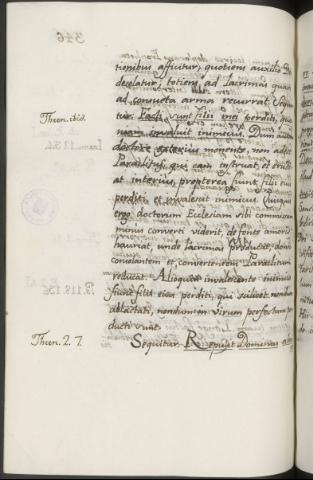 346
tionibus afficitur, quotiens auxilio
desolatur; totiens ad lacrimas quasi
ad consueta arma recurrat. Sequi
tur. Facti sunt filii mei perditi, quo
Thren. ibid.
niam invaluit inimicus. Dum
doctore exterius monente, non adsit
Paraclitus, qui eam instruat, et erudi
at interius, propterea sunt filii eius
perditi, et invaluit inimicus. Quisquis
ergo doctorum Ecclesiam sibi commissam
minus converti viderit, de fonte amoris
hauriat, unde lacrimas producat, donec
consolantem et convertentem Paraclitum
reducat. Alioquin invalescente inimico
fient filii eius perditi, qui scilicet
ablactati, nondum in virum perfectum per
ducti sunt.
Thren. 2. 7.
Sequitur. Repulit Dominus